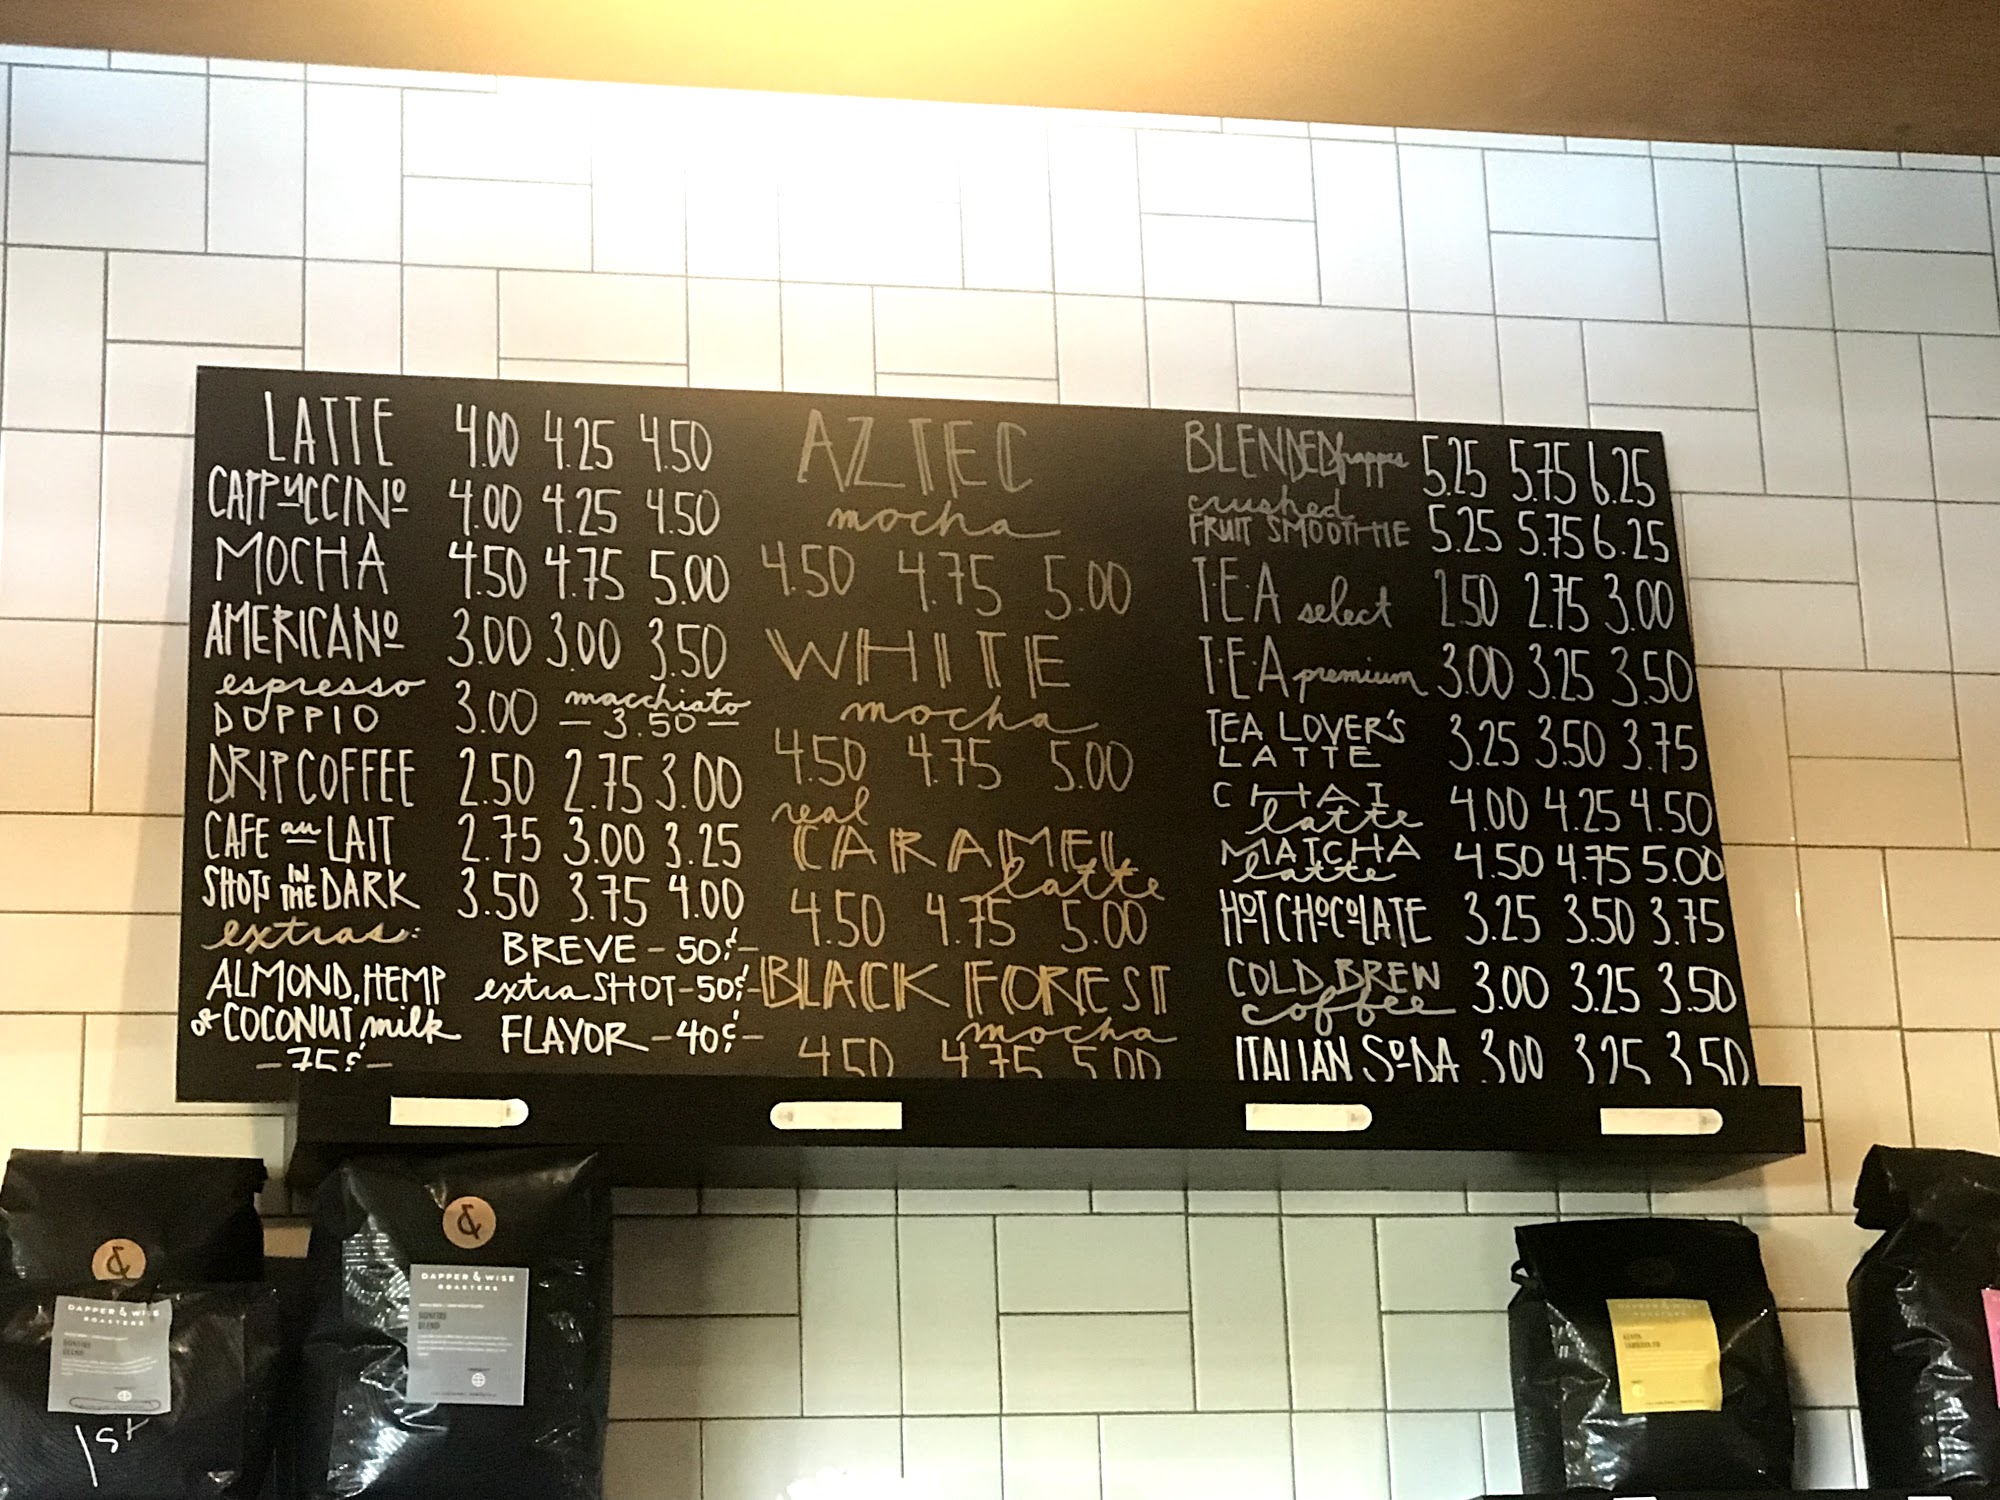 LATTE 4.00 4.25 4.50
CAPPUCCINO 4.00 4.25 4.50
MOCHA 4.50 4.75 5.00
AMERICANO 3.00 3.00 3.50
espresso
DOPPIO 3.00 macchiato
- 3.50 -
DRIP COFFEE 2.50 2.75 3.00
CAFE au LAIT 2.75 3.00 3.25
SHOTS IN THE DARK 3.50 3.75 4.00
extras:
ALMOND, HEMP
or COCONUT milk
- 75¢ -
BREVE - 50¢ -
extra SHOT - 50¢ -
FLAVOR - 40¢ -
AZTEC
mocha
4.50 4.75 5.00
WHITE
mocha
4.50 4.75 5.00
real
CARAMEL
latte
4.50 4.75 5.00
BLACK FOREST
mocha
4.50 4.75 5.00
BLENDED frappes 5.25 5.75 6.25
crushed
FRUIT SMOOTHIE 5.25 5.75 6.25
T.E.A select 2.50 2.75 3.00
T.E.A premium 3.00 3.25 3.50
TEA LOVER'S
LATTE 3.25 3.50 3.75
CHAI
latte 4.00 4.25 4.50
MATCHA
latte 4.50 4.75 5.00
HOT CHOCOLATE 3.25 3.50 3.75
COLD BREW
coffee 3.00 3.25 3.50
ITALIAN SODA 3.00 3.25 3.50
DAPPER & WISE
ROASTERS
BLEND
1st
DAPPER & WISE
ROASTERS
BLEND
DAPPER & WISE
ROASTERS
KENYA